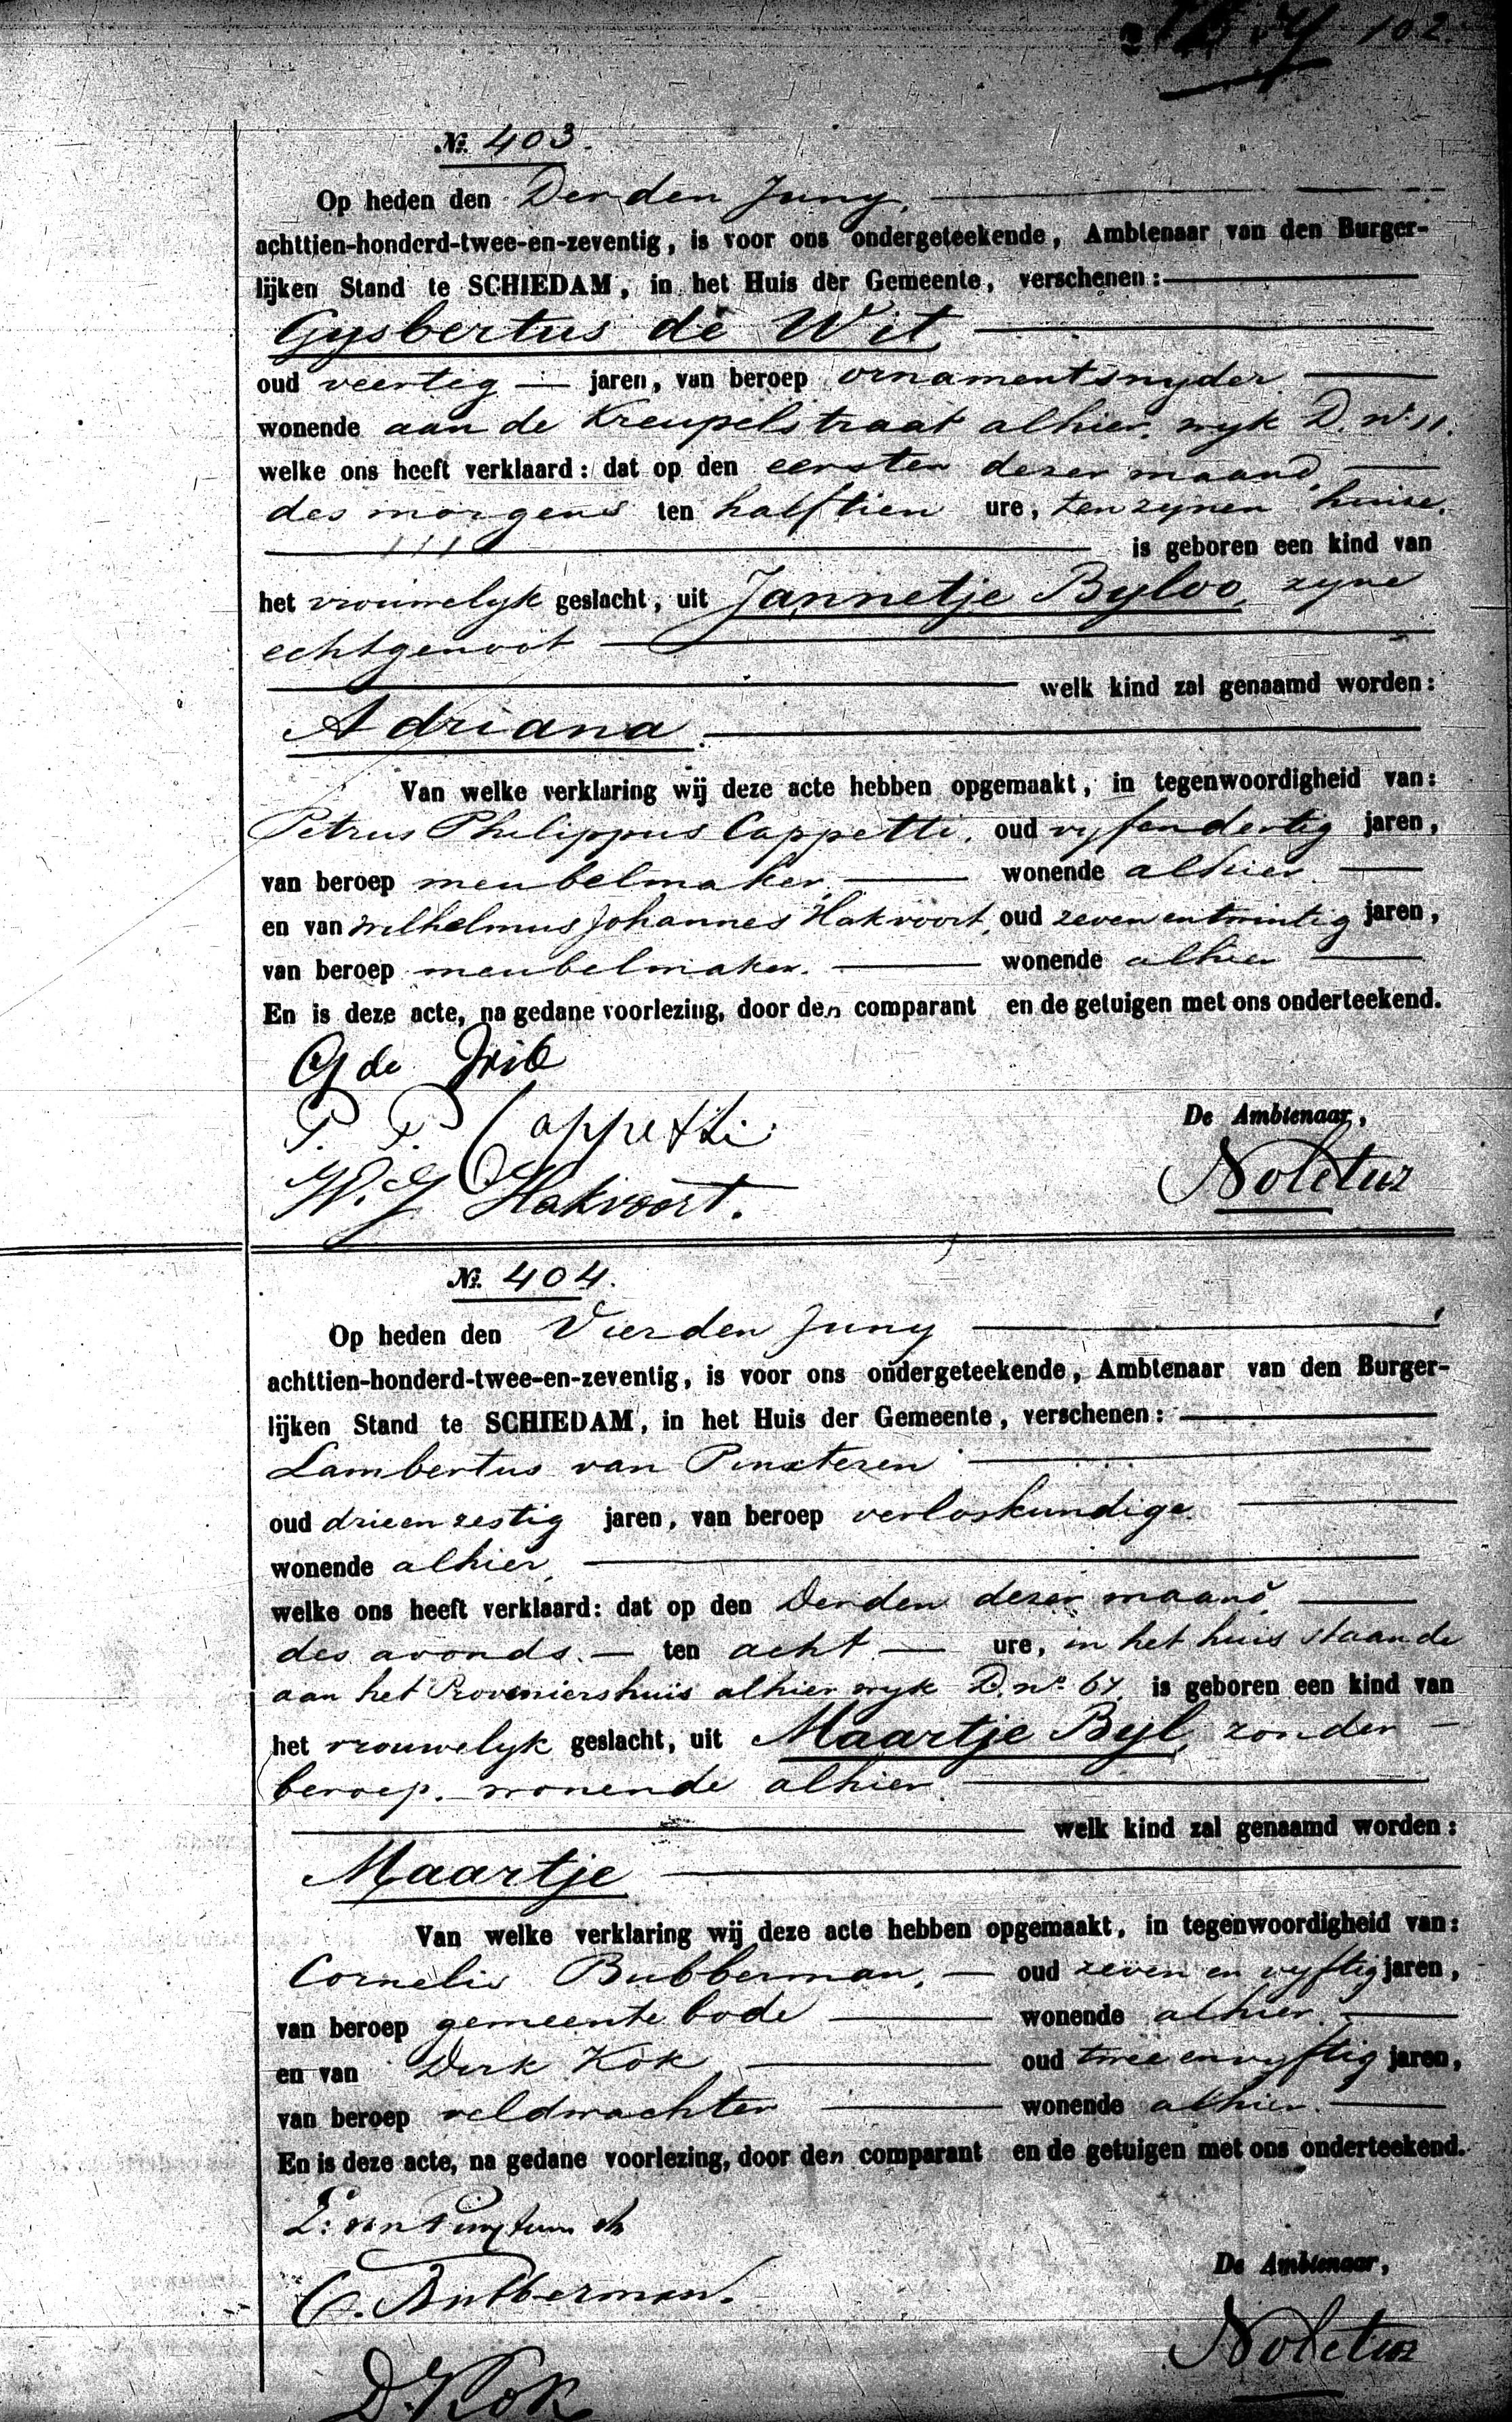 102.
№ 403.
Op heden den Derden Juny,
achttien-honderd-twee-en-zeventig, is voor ons ondergeteekende, Ambtenaar van den Burger-
lijken Stand te SCHIEDAM, in het Huis der Gemeente, verschenen:
Gysbertus de Wit,
oud veertig jaren, van beroep ornamentsnyder
wonende aan de Kreupelstraat alhier, wyk D. no 11.
welke ons heeft verklaard: dat op den eersten dezer maand,
des morgens ten halftien ure, ten zynen huize.
is geboren een kind van
het vrouwelyk geslacht, uit Jannetje Byloo, zyne
echtgenoot
welk kind zal genaamd worden:
Adriana.
Van welke verklaring wij deze acte hebben opgemaakt, in tegenwoordigheid van:
Petrus Philippus Cappetti, oud vyfendertig jaren,
van beroep meubelmaker. wonende alhier.
en van Wilhelmus Johannes Hakvoort, oud zeven en twintig jaren,
van beroep meubelmaker. wonende alhier
En is deze acte, na gedane voorlezing, door den comparant en de getuigen met ons onderteekend.
G de Wit
P. P. Cappetti
De Ambtenaar,
W. J. Hakvoort.
№ 404.
Op heden den Vierden Juny
achttien-honderd-twee-en-zeventig, is voor ons ondergeteekende, Ambtenaar van den Burger-
lijken Stand te SCHIEDAM, in het Huis der Gemeente, verschenen:
Lambertus van Pinxteren
oud drieenzestig jaren, van beroep verloskundige.
wonende alhier,
welke ons heeft verklaard: dat op den Derden dezer maand,
des avonds. ten acht ure, in het huis staande
aan het Proveniershuis alhier wyk D. no 67, is geboren een kind van
het vrouwelyk geslacht, uit Maartje Byl, zonder
beroep. wonende alhier.
welk kind zal genaamd worden:
Maartje
Van welke verklaring wij deze acte hebben opgemaakt, in tegenwoordigheid van:
Cornelis Bubberman, oud zeven en vyftig jaren,
van beroep gemeente bode wonende alhier.
en van Dirk Kok oud twee en vyftig jaren,
van beroep veldwachter wonende alhier.
En is deze acte, na gedane voorlezing, door den comparant en de getuigen met ons onderteekend.
C. Bubberman.
De Ambtenaar,
D. Kok